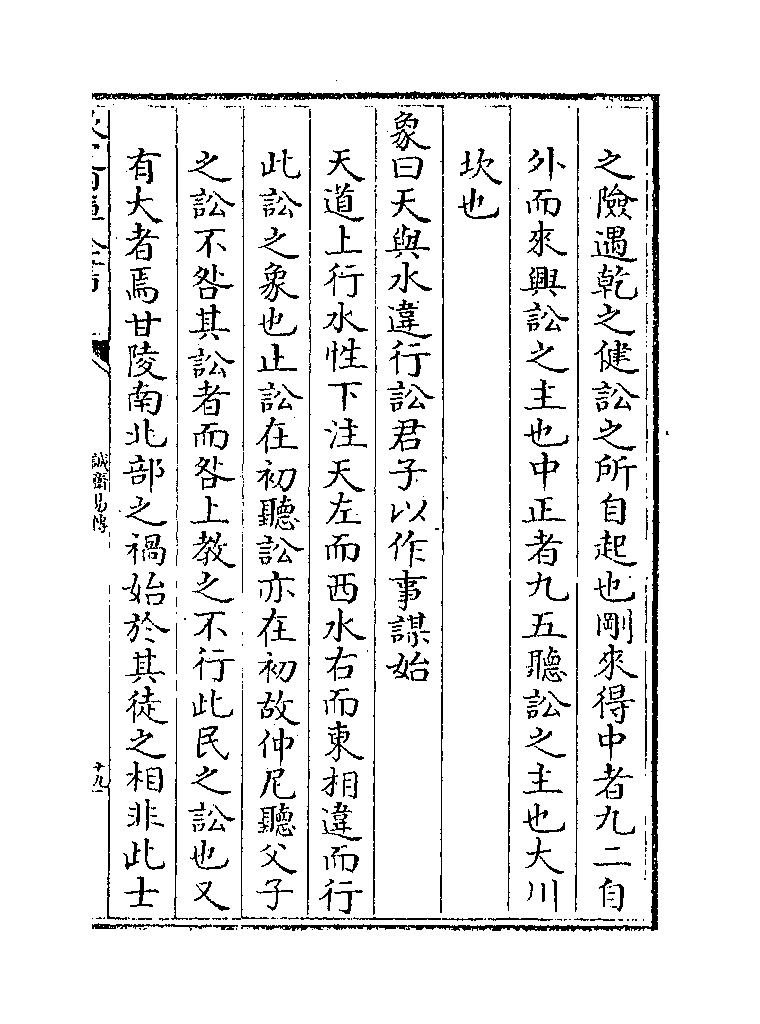 之險遇乾之健訟之所自起也剛來得中者九二自
外而來興訟之主也中正者九五聽訟之主也大川
坎也
象曰天與水違行訟君子以作事謀始
天道上行水性下注天左而西水右而東相違而行
此訟之象也止訟在初聽訟亦在初故仲尼聽父子
之訟不咎其訟者而咎上教之不行此民之訟也又
有大者焉甘陵南北部之禍始於其徒之相非此士
誠齋易傳
十九